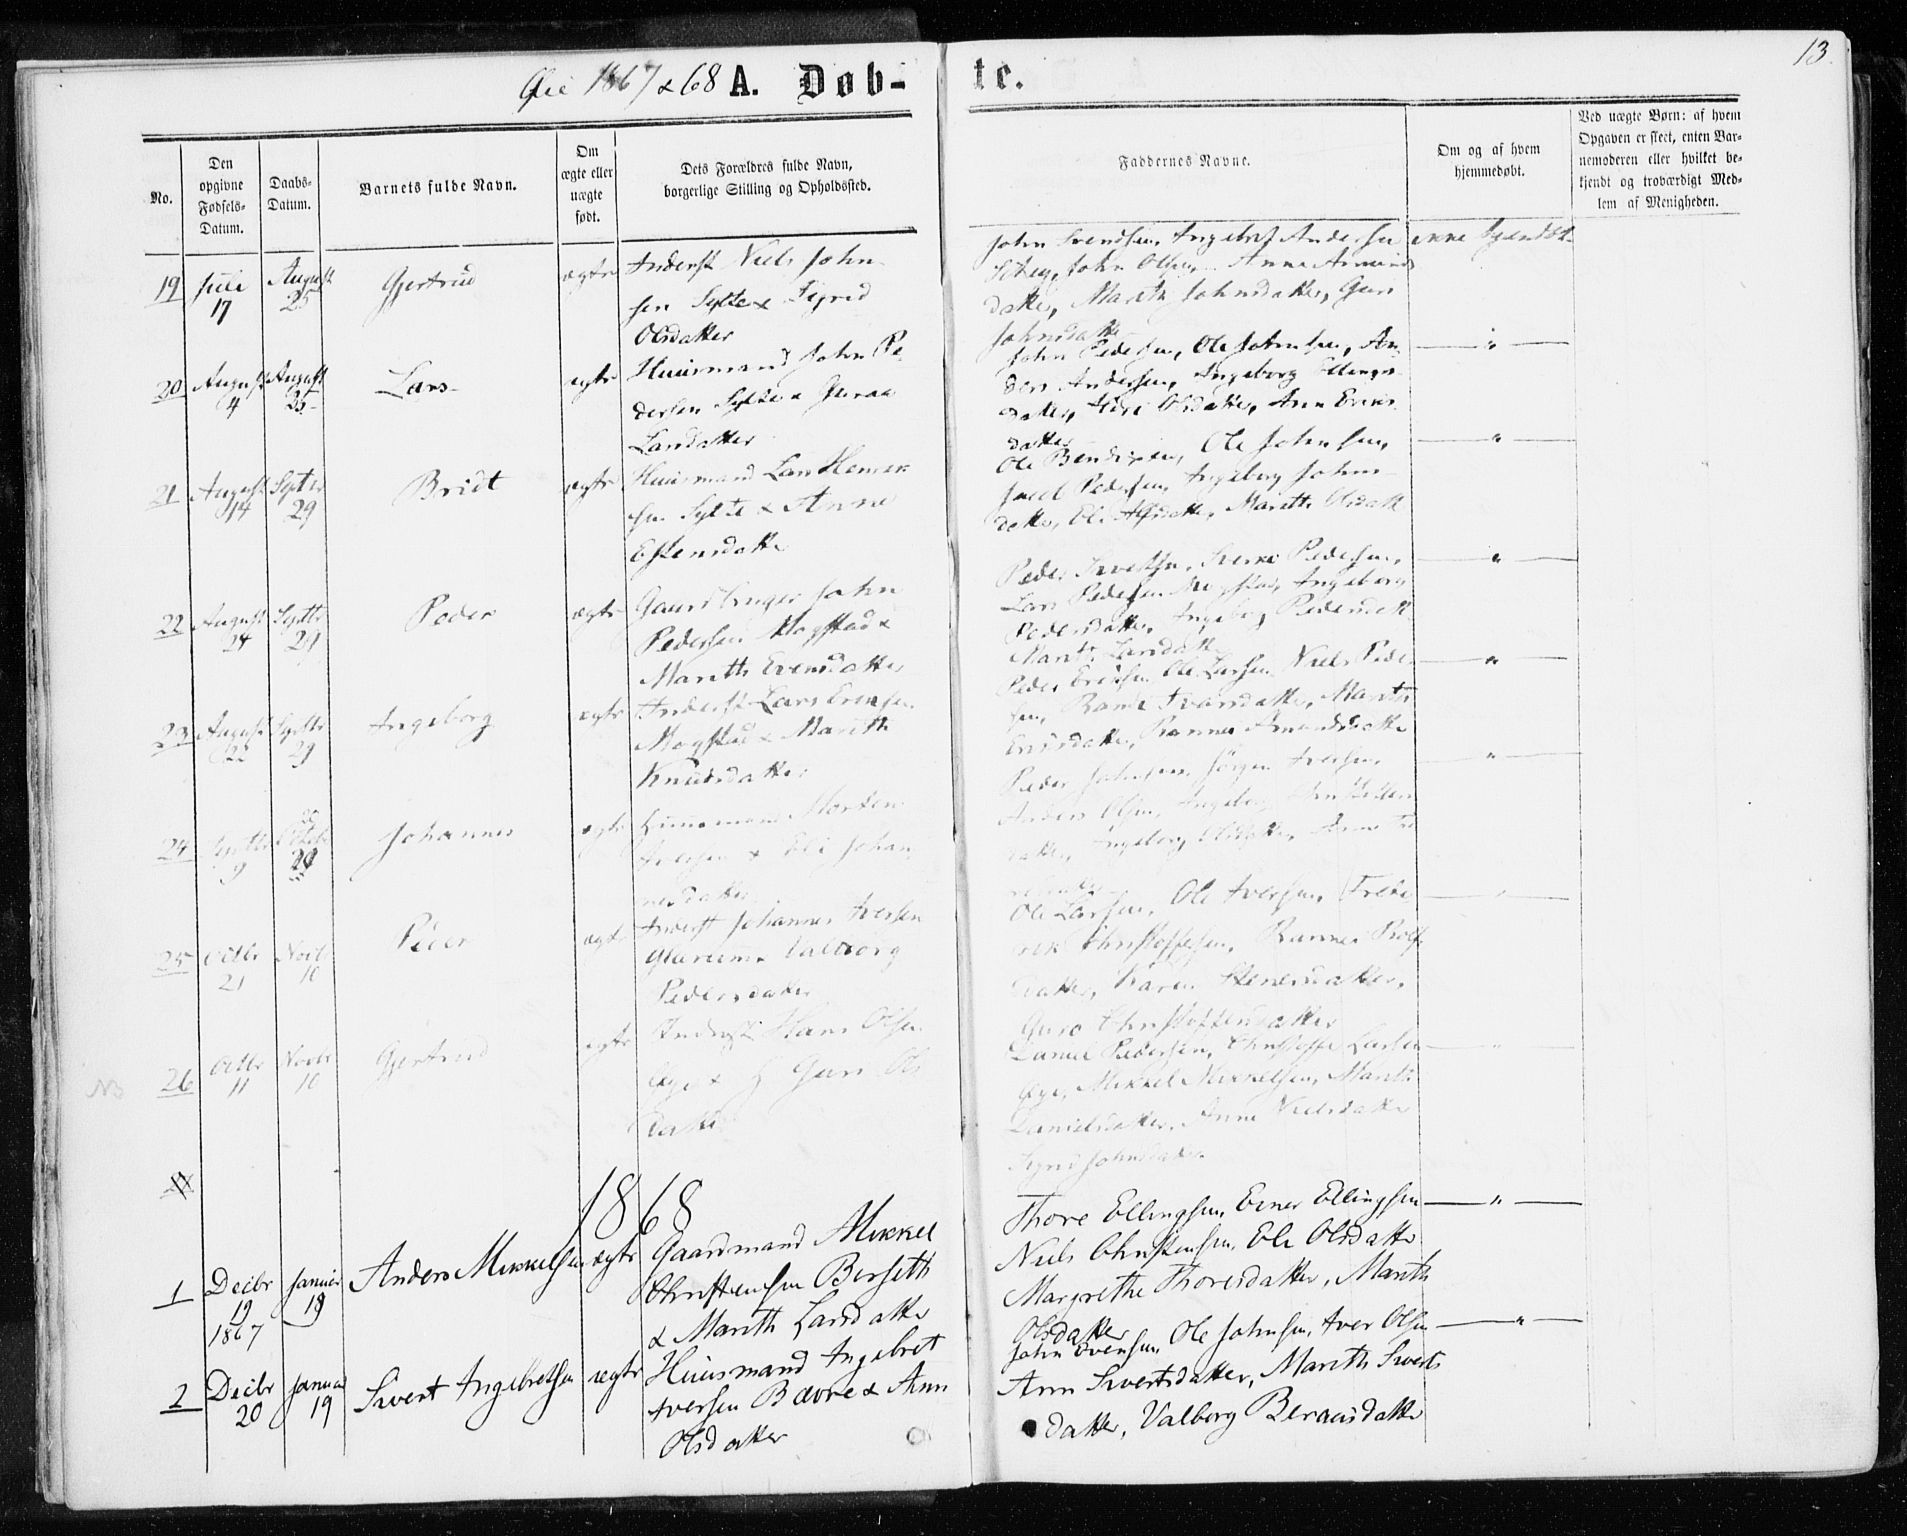 13.
1867 & 68 A. Døb-
te.
No.
Den
opgivne
Fødsels-
Datum.
Daabs-
Datum.
Barnets fulde Navn.
Om
ægte eller
uægte
født.
Dets Forældres fulde Navn,
borgerlige Stilling og Opholdssted.
Faddernes Navne.
Om og af hvem
hjemmedøbt.
Ved uægte Børn: af hvem
Opgaven er skeet, enten Bar-
nemoderen eller hvilket be-
kjendt og troværdigt Med-
lem af Menigheden.
19 Juli 17 August 25 Gjertrud ægte
Inderst Niels John-
sen Sylte & Sigrid
Olsdatter
John Svendsen, Ingebret Andersen
John Olsen, Anne Amunds
datter, Marith Johnsdatter, Guri
Johnsdatter
20 August 4 August 25 Lars ægte
Huusmand John Pe-
dersen Sylte & Guraa
Larsdatter
John Pedersen, Ole Johnsen, An-
ders Andersen, Ingeborg Ellings-
datter, Siri Olsdatter, Ann Eriks-
datter
"
21 August 14 Septbr 29 Bridt ægte
Huusmand Lars
sen Sylte & Anne
Estensdatter
Ole Bendixsen, Ole Johnsen,
Pedersen, Ingeborg Johns-
datter, Marith Olsdatt
"
22 August 24 Septbr 29 Peder ægte
Gaardbruger John
Pedersen Mogstad &
Marith Evensdatter
Peder Sivertsen, Pedersen,
Lars Pedersen Mogstad, Ingeborg
Pedersdatter, Ingeborg Pedersdatt
Marit Larsdatt
"
23 August 22 Septbr 29 Ingeborg ægte
Inderst Lars Evensen
Mogstad & Marith
Knudsdatter
Peder Eriksen, Ole Larsen, Niels Peder-
sen, Iversdatter, Marith
Eriksdatter, Amundsdatter
"
24 Septbr 9 Octobr 20 Johannes ægte
Huusmand Morten
Iversen & Eli Johan-
nesdatter
Peder Johnsen, Jörgen Iversen,
Anders Olsen, Ingeborg
datter, Ingeborg Olsdatter, Anne
"
25 Octbr 21 Novbr 10 Peder ægte
Inderst Johannes Iversen
Valborg
Pedersdatter
Ole Larsen, Ole Iversen, Frede-
rik Christoffersen,
datter, Karen Stenersdatter,
Guro Christoffersdatter
"
NB 26 Octbr 11 Novbr 10 Gjertrud ægte
Inderst Hans Olsen
Öye & Guri Ols
datter
Daniel Pedersen, Christoffer Larsen
Öye, Mikkel Mikkelsen, Marith
Danielsdatter, Anne Nielsdatter
Sigrid Johnsdatter
"
1868
1 Decbr 19 1867 Januar 19 Anders Mikkelsen ægte
Gaardmand Mikkel
Christensen Berseth
& Marith Larsdatter
Thore Ellingsen, Einer Ellingsen
Niels Christensen, Eli Olsdatter
Margrethe Thoresdatter, Marith
Olsdatter
"
2 Decbr 20 Januar 19 Sivert Ingebretsen ægte
Huusmand Ingebret
Iversen Bævre & Ann
Olsdatter
John Evensen, Ole Johnsen, Iver Olsen
Ann Sivertsdatter, Marith Siverts
datter, Valborg Berausdatter
"